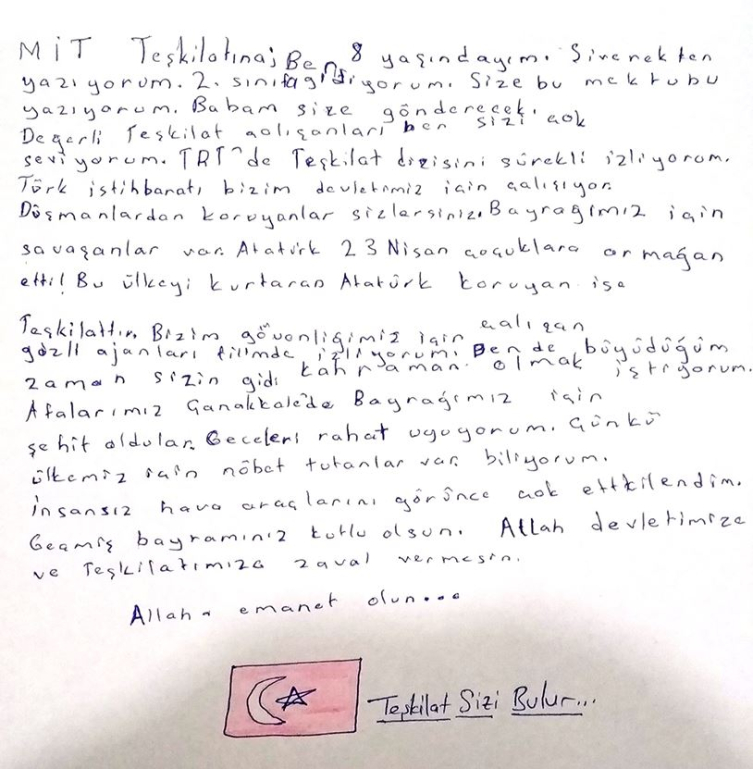 MİT Teşkilatına; Ben 8 yaşındayım. Siverekten
yazıyorum. 2. sınıfa gidiyorum. Size bu mektubu
yazıyorum. Babam size gönderecek.
Değerli Teşkilat çalışanları ben sizi çok
seviyorum. TRT'de Teşkilat dizisini sürekli izliyorum.
Türk istihbaratı bizim devletimiz için çalışıyor.
Düşmanlardan koruyanlar sizlersiniz. Bayrağımız için
savaşanlar var. Atatürk 23 Nisan çocuklara armağan
etti! Bu ülkeyi kurtaran Atatürk koruyan ise
Teşkilattır. Bizim güvenliğimiz için çalışan
gizli ajanları filimde izliyorum. Ben de büyüdüğüm
zaman sizin gidi kahraman olmak istiyorum.
Atalarımız Çanakkalede Bayrağımız için
şehit oldular. Geceleri rahat uyuyorum. Çünkü
ülkemiz için nöbet tutanlar var biliyorum.
İnsansız hava araçlarını görünce çok ettkilendim.
Geçmiş bayramınız kutlu olsun. Allah devletimize
ve Teşkilatımıza zaval vermesin.
Allaha emanet olun...
Teşkilat Sizi Bulur...